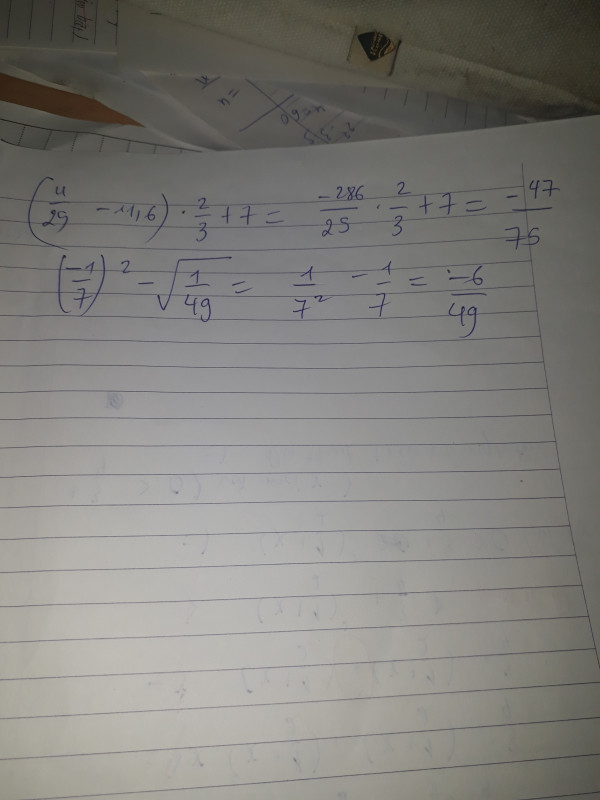 (4/25 - 11,6) · 2/3 + 7 = -286/25 · 2/3 + 7 = -47/75
(-1/7)² - √(1/49) = 1/7² - 1/7 = -6/49